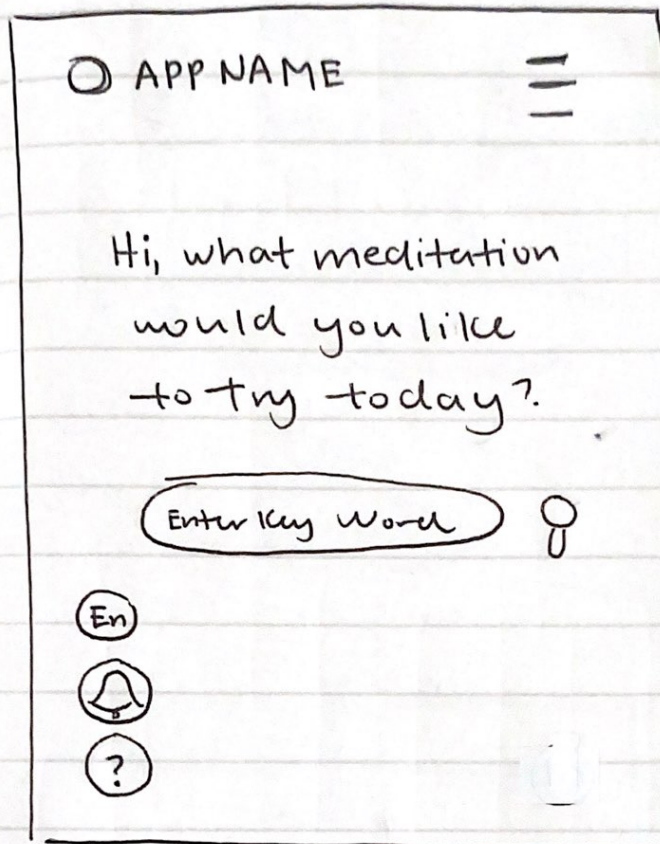 APP NAME
Hi, what meditation
would you like
to try today?
Enter Key Word
En
?